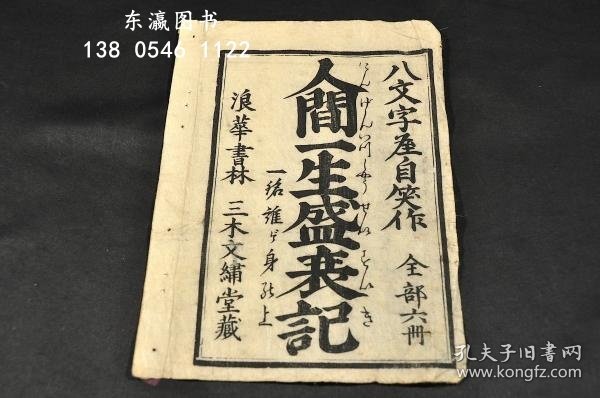 东瀛图书
138 0546 1122
八文字屋自笑作 全部六冊
人間一生盛衰記
にんげんいつしやうせいすいき
浪華書林 三木文繡堂藏
孔夫子旧书网
www.kongfz.com